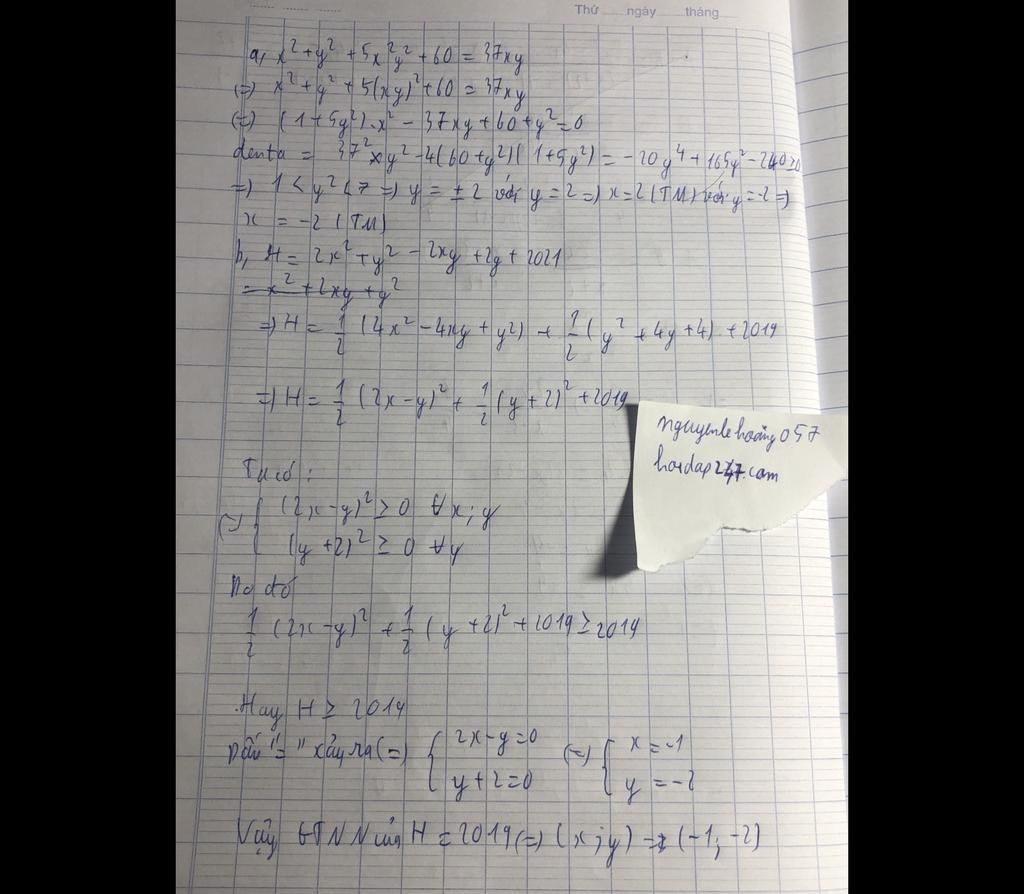 Thứ ngày tháng
a, x² + y² + 5x²y² + 60 = 37xy
(=) x² + y² + 5(xy)² + 60 = 37xy
(=) (1 + 5y²).x² - 37xy + 60 + y² = 0
denta = 37²xy² - 4(60 + y²)(1 + 5y²) = -20y⁴ + 165y² - 240 ≥ 0
=) 1 < y² < 7 =) y = ±2 với y = 2 =) x = 2 (TM) với y = -2 =)
x = -2 (TM)
b, H = 2x² + y² - 2xy + 2y + 2021
= x² + 2xy + y²
=) H = 1/2 (4x² - 4xy + y²) + 1/2 (y² + 4y + 4) + 2019
=) H = 1/2 (2x - y)² + 1/2 (y + 2)² + 2019
nguyenlehoang057
hoidap247.com
Ta có:
(=) { (2x - y)² ≥ 0 ∀x; y
(y + 2)² ≥ 0 ∀y
Do đó
1/2 (2x - y)² + 1/2 (y + 2)² + 2019 ≥ 2019
Hay H ≥ 2019
Dấu "=" xảy ra (=) { 2x - y = 0 (=) { x = -1
y + 2 = 0 y = -2
Vậy GTNN của H = 2019 (=) (x; y) = (-1; -2)